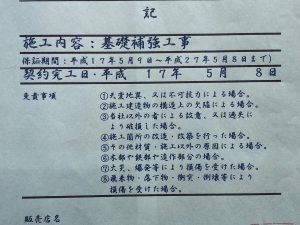 記
施工内容：基礎補強工事
保証期間：平成17年5月9日～平成27年5月8日まで）
契約完工日・平成 17年 5月 8日
免責事項 ①天変地異、又は不可抗力による場合。
②施工建造物の構造上の欠陥による場合。
③当社以外の者による故意、又は過失に
より破損した場合。
④施工箇所の改造・改築を行った場合。
⑤その他材質・施工以外の原因による場合。
⑥木部や鉄部で造作部分の場合。
⑦火災、爆発等により損傷を受けた場合。
⑧飛来物・落下物・衝突・倒壊等により
損傷を受けた場合。
販売店名